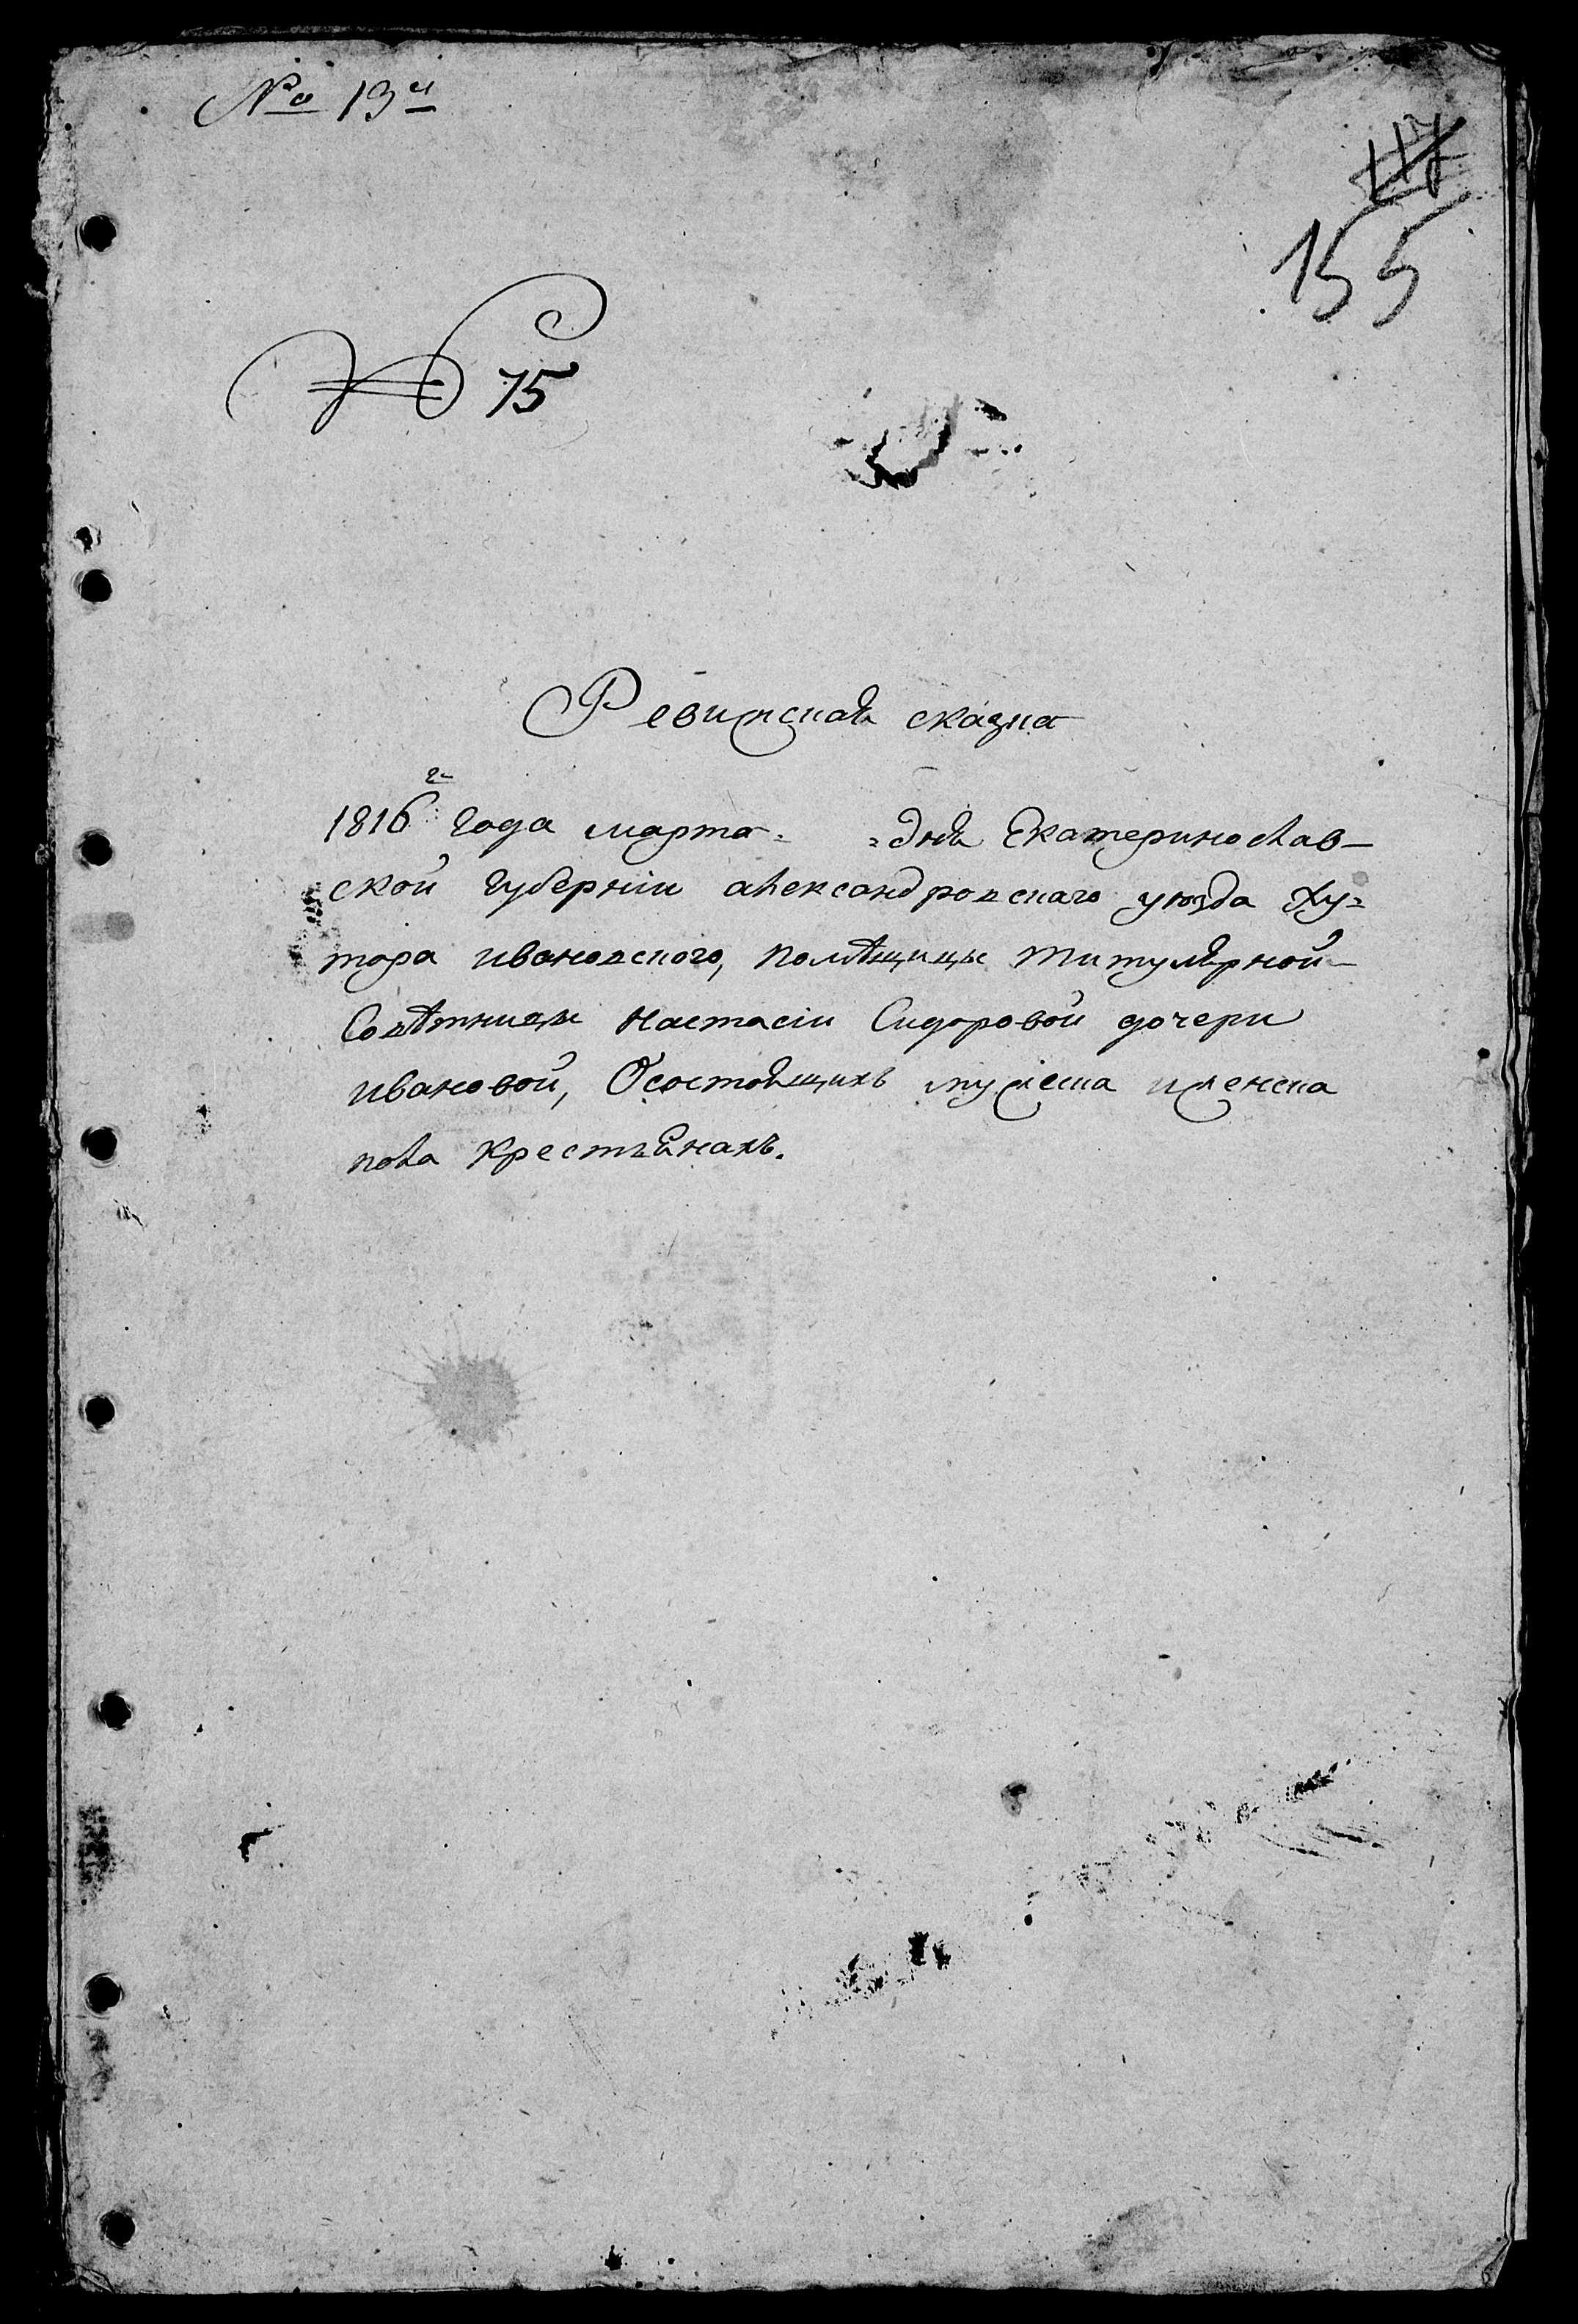 № 13й
155
№ 75
Ревижская сказка
1816го года марта = = дня Екатеринослав-
ской губернiи александровскаго уюзда Ху=
тора ивановского, помѣщицы титулярной-
Совѣтницы Настасiи Сидоровой дочери
ивановой, О состоящихъ мужеска и женска
пола крестьянахъ.